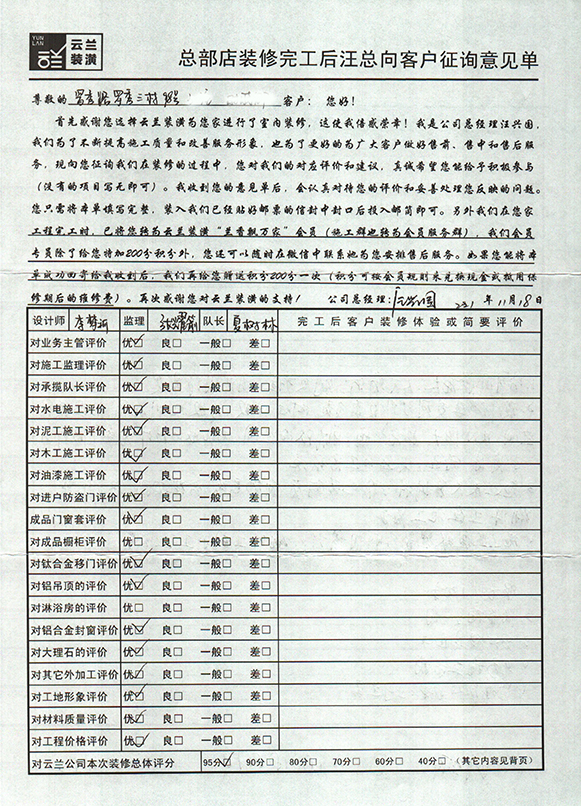 YUN LAN 云兰装潢
总部店装修完工后汪总向客户征询意见单
尊敬的 罗秀路罗秀三村 客户： 您好！
首先感谢您选择云兰装潢为您家进行了室内装修，这使我倍感荣幸！我是公司总经理汪兴国，
我们为了不断提高施工质量和改善服务形象，也为了更好的为广大客户做好售前、售中和售后服
务，现向您征询我们在装修的过程中，您对我们的对应评价和建议，真诚希望您能给予积极参与
（没有的项目写无即可）。我收到您的意见单后，会认真对待您的评价和妥善处理您反映的问题。
您只需将本单填写完整，装入我们已经贴好邮票的信封中封口后投入邮筒即可。另外我们在您家
工程完工时，已将您转为云兰装潢“兰香飘万家”会员（施工群也转为会员服务群），我们会员
专员除了给您特加200分积分外，您还可以随时在微信中联系她为您安排售后服务。如果您能将本
单成功回寄给我收到后，我们再给您赠送积分200分一次（积分可按会员规则来兑换现金或抵用保
修期后的维修费）。再次感谢您对云兰装潢的支持！ 公司总经理：汪兴国 2021年11月18日
设计师 监理 队长 夏树林 完工后客户装修体验或简要评价
对业务主管评价 优☑ 良□ 一般□ 差□
对施工监理评价 优☑ 良□ 一般□ 差□
对承揽队长评价 优☑ 良□ 一般□ 差□
对水电施工评价 优☑ 良□ 一般□ 差□
对泥工施工评价 优☑ 良□ 一般□ 差□
对木工施工评价 优☑ 良□ 一般□ 差□
对油漆施工评价 优☑ 良□ 一般□ 差□
对进户防盗门评价 优☑ 良□ 一般□ 差□
成品门窗套评价 优☑ 良□ 一般□ 差□
对成品橱柜评价 优□ 良□ 一般□ 差□
对钛合金移门评价 优☑ 良□ 一般□ 差□
对铝吊顶的评价 优☑ 良□ 一般□ 差□
对淋浴房的评价 优□ 良□ 一般□ 差□
对铝合金封窗评价 优☑ 良□ 一般□ 差□
对大理石的评价 优☑ 良□ 一般□ 差□
对其它外加工评价 优☑ 良□ 一般□ 差□
对工地形象评价 优☑ 良□ 一般□ 差□
对材料质量评价 优☑ 良□ 一般□ 差□
对工程价格评价 优☑ 良□ 一般□ 差□
对云兰公司本次装修总体评分 95分☑ 90分□ 80分□ 70分□ 60分□ 40分□ （其它内容见背页）